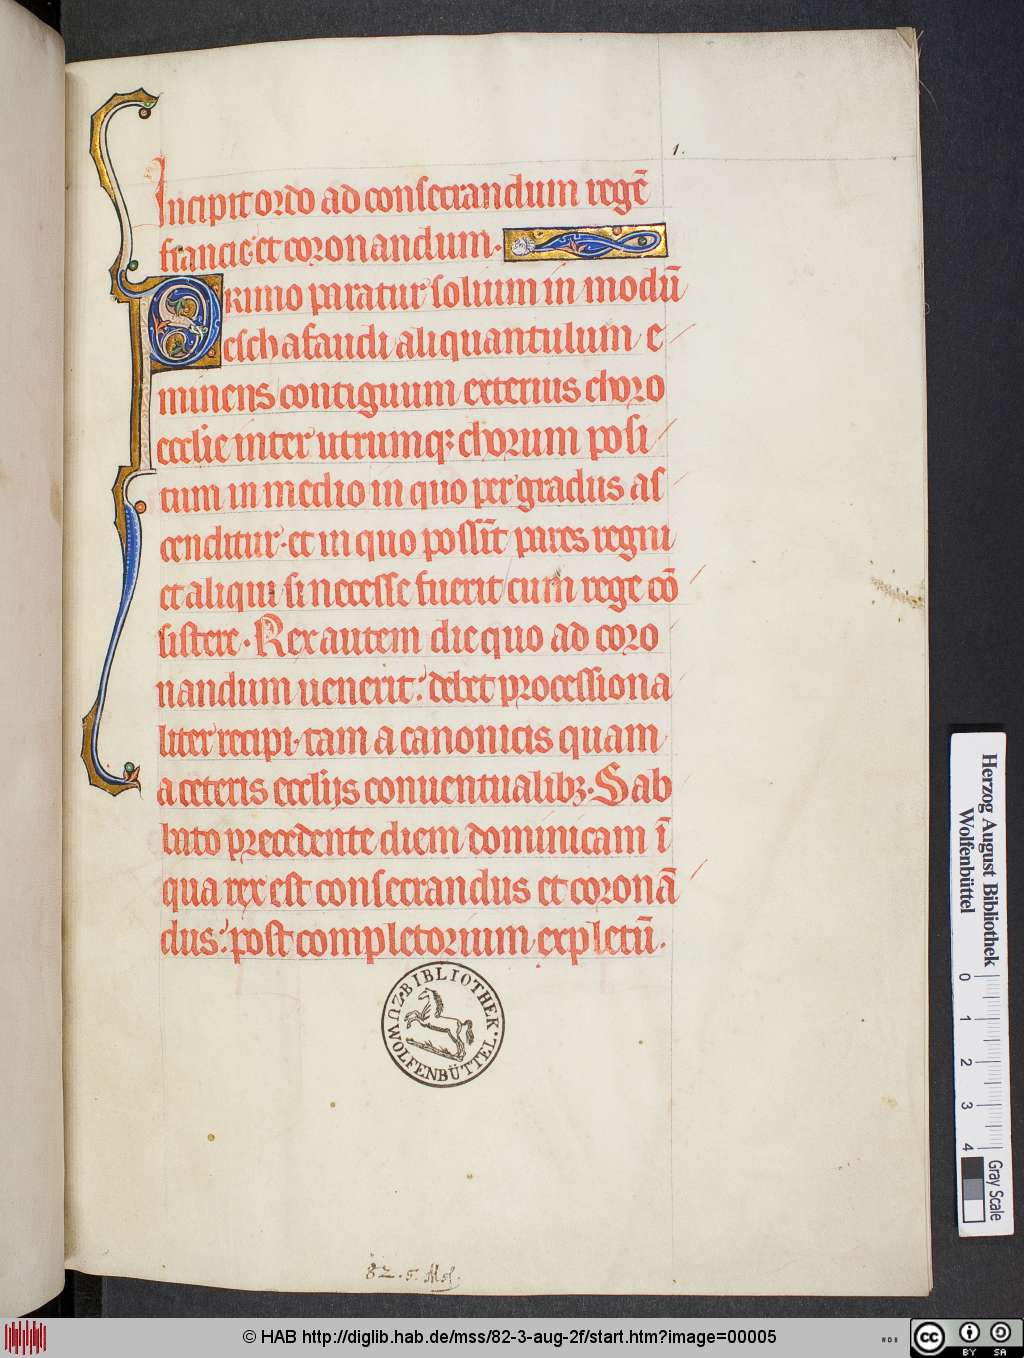 1.
Incipit ordo ad consecrandum regē
francie· et coronandum.
Primo paratur solium in modū
eschafaudi aliquantulum e
minens contiguum exterius choro
ecclie inter utrumqꝫ chorum posi
tum in medio in quo per gradus as
cenditur· et in quo possīt pares regni
et aliqui si necesse fuerit cum rege cō
sistere. Rex autem die quo ad coro
nandum uenerit: debet processiona
liter recipi· tam a canonicis quam
a ceteris eccliis conuentualibꝫ. Sab
bato precedente diem dominicam ī
qua rex est consecrandus et coronā
dus: post completorium expletū.
BIBLIOTHEK. ZU WOLFENBÜTTEL
Herzog August Bibliothek
Wolfenbüttel
0 1 2 3 4
Gray Scale
© HAB http://diglib.hab.de/mss/82-3-aug-2f/start.htm?image=00005
cc BY SA